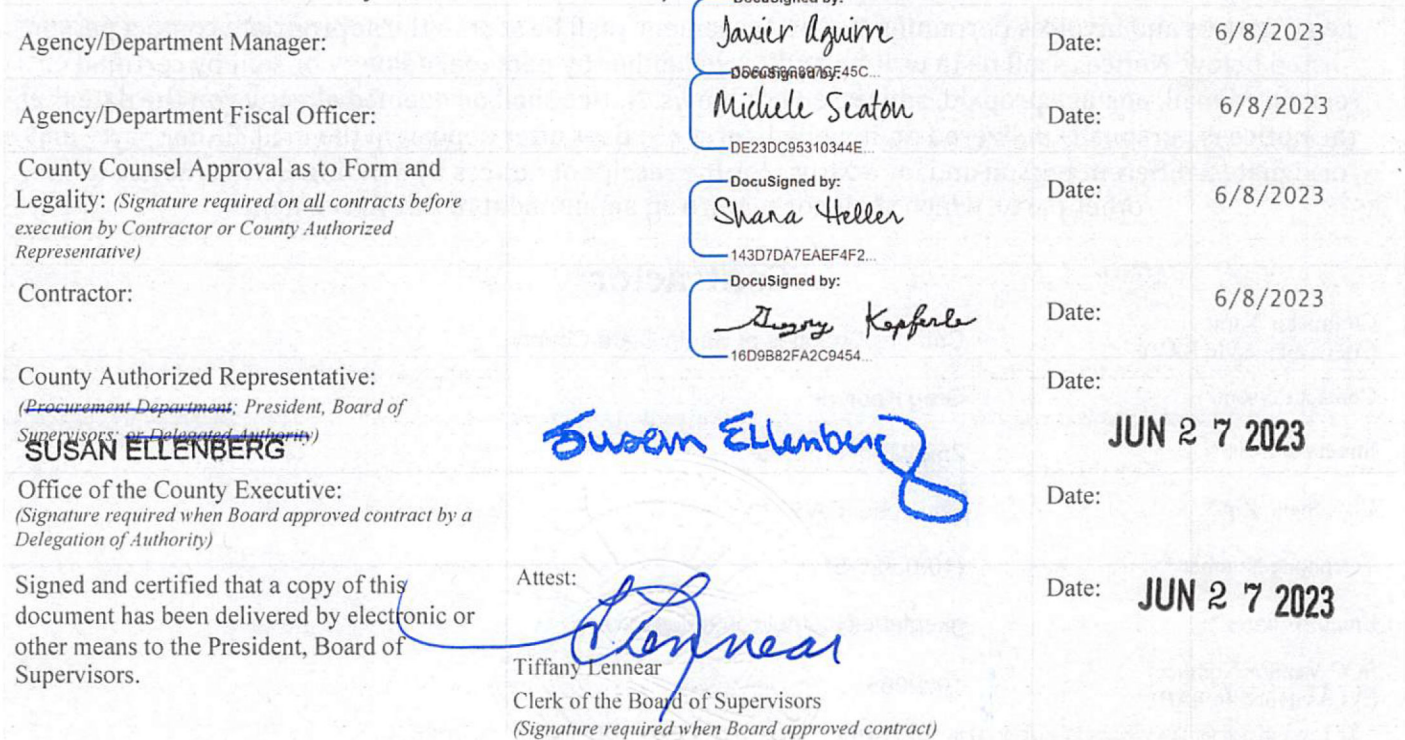 DocuSigned by:
Agency/Department Manager:
Javier Aguirre
Date:
6/8/2023
DocuSigned by:
Agency/Department Fiscal Officer:
Michele Seaton
Date:
6/8/2023
DE23DC95310344E...
County Counsel Approval as to Form and
Legality: (Signature required on all contracts before
execution by Contractor or County Authorized
Representative)
DocuSigned by:
Shana Heller
Date:
6/8/2023
143D7DA7EAEF4F2...
Contractor:
DocuSigned by:
Gregory Kepferle
Date:
6/8/2023
16D9B82FA2C9454...
County Authorized Representative:
(Procurement Department; President, Board of
Supervisors; or Delegated Authority)
SUSAN ELLENBERG
Susan Ellenberg
Date:
JUN 27 2023
Office of the County Executive:
(Signature required when Board approved contract by a
Delegation of Authority)
Date:
Signed and certified that a copy of this
document has been delivered by electronic or
other means to the President, Board of
Supervisors.
Attest:
TLennear
Tiffany Lennear
Clerk of the Board of Supervisors
(Signature required when Board approved contract)
Date:
JUN 27 2023